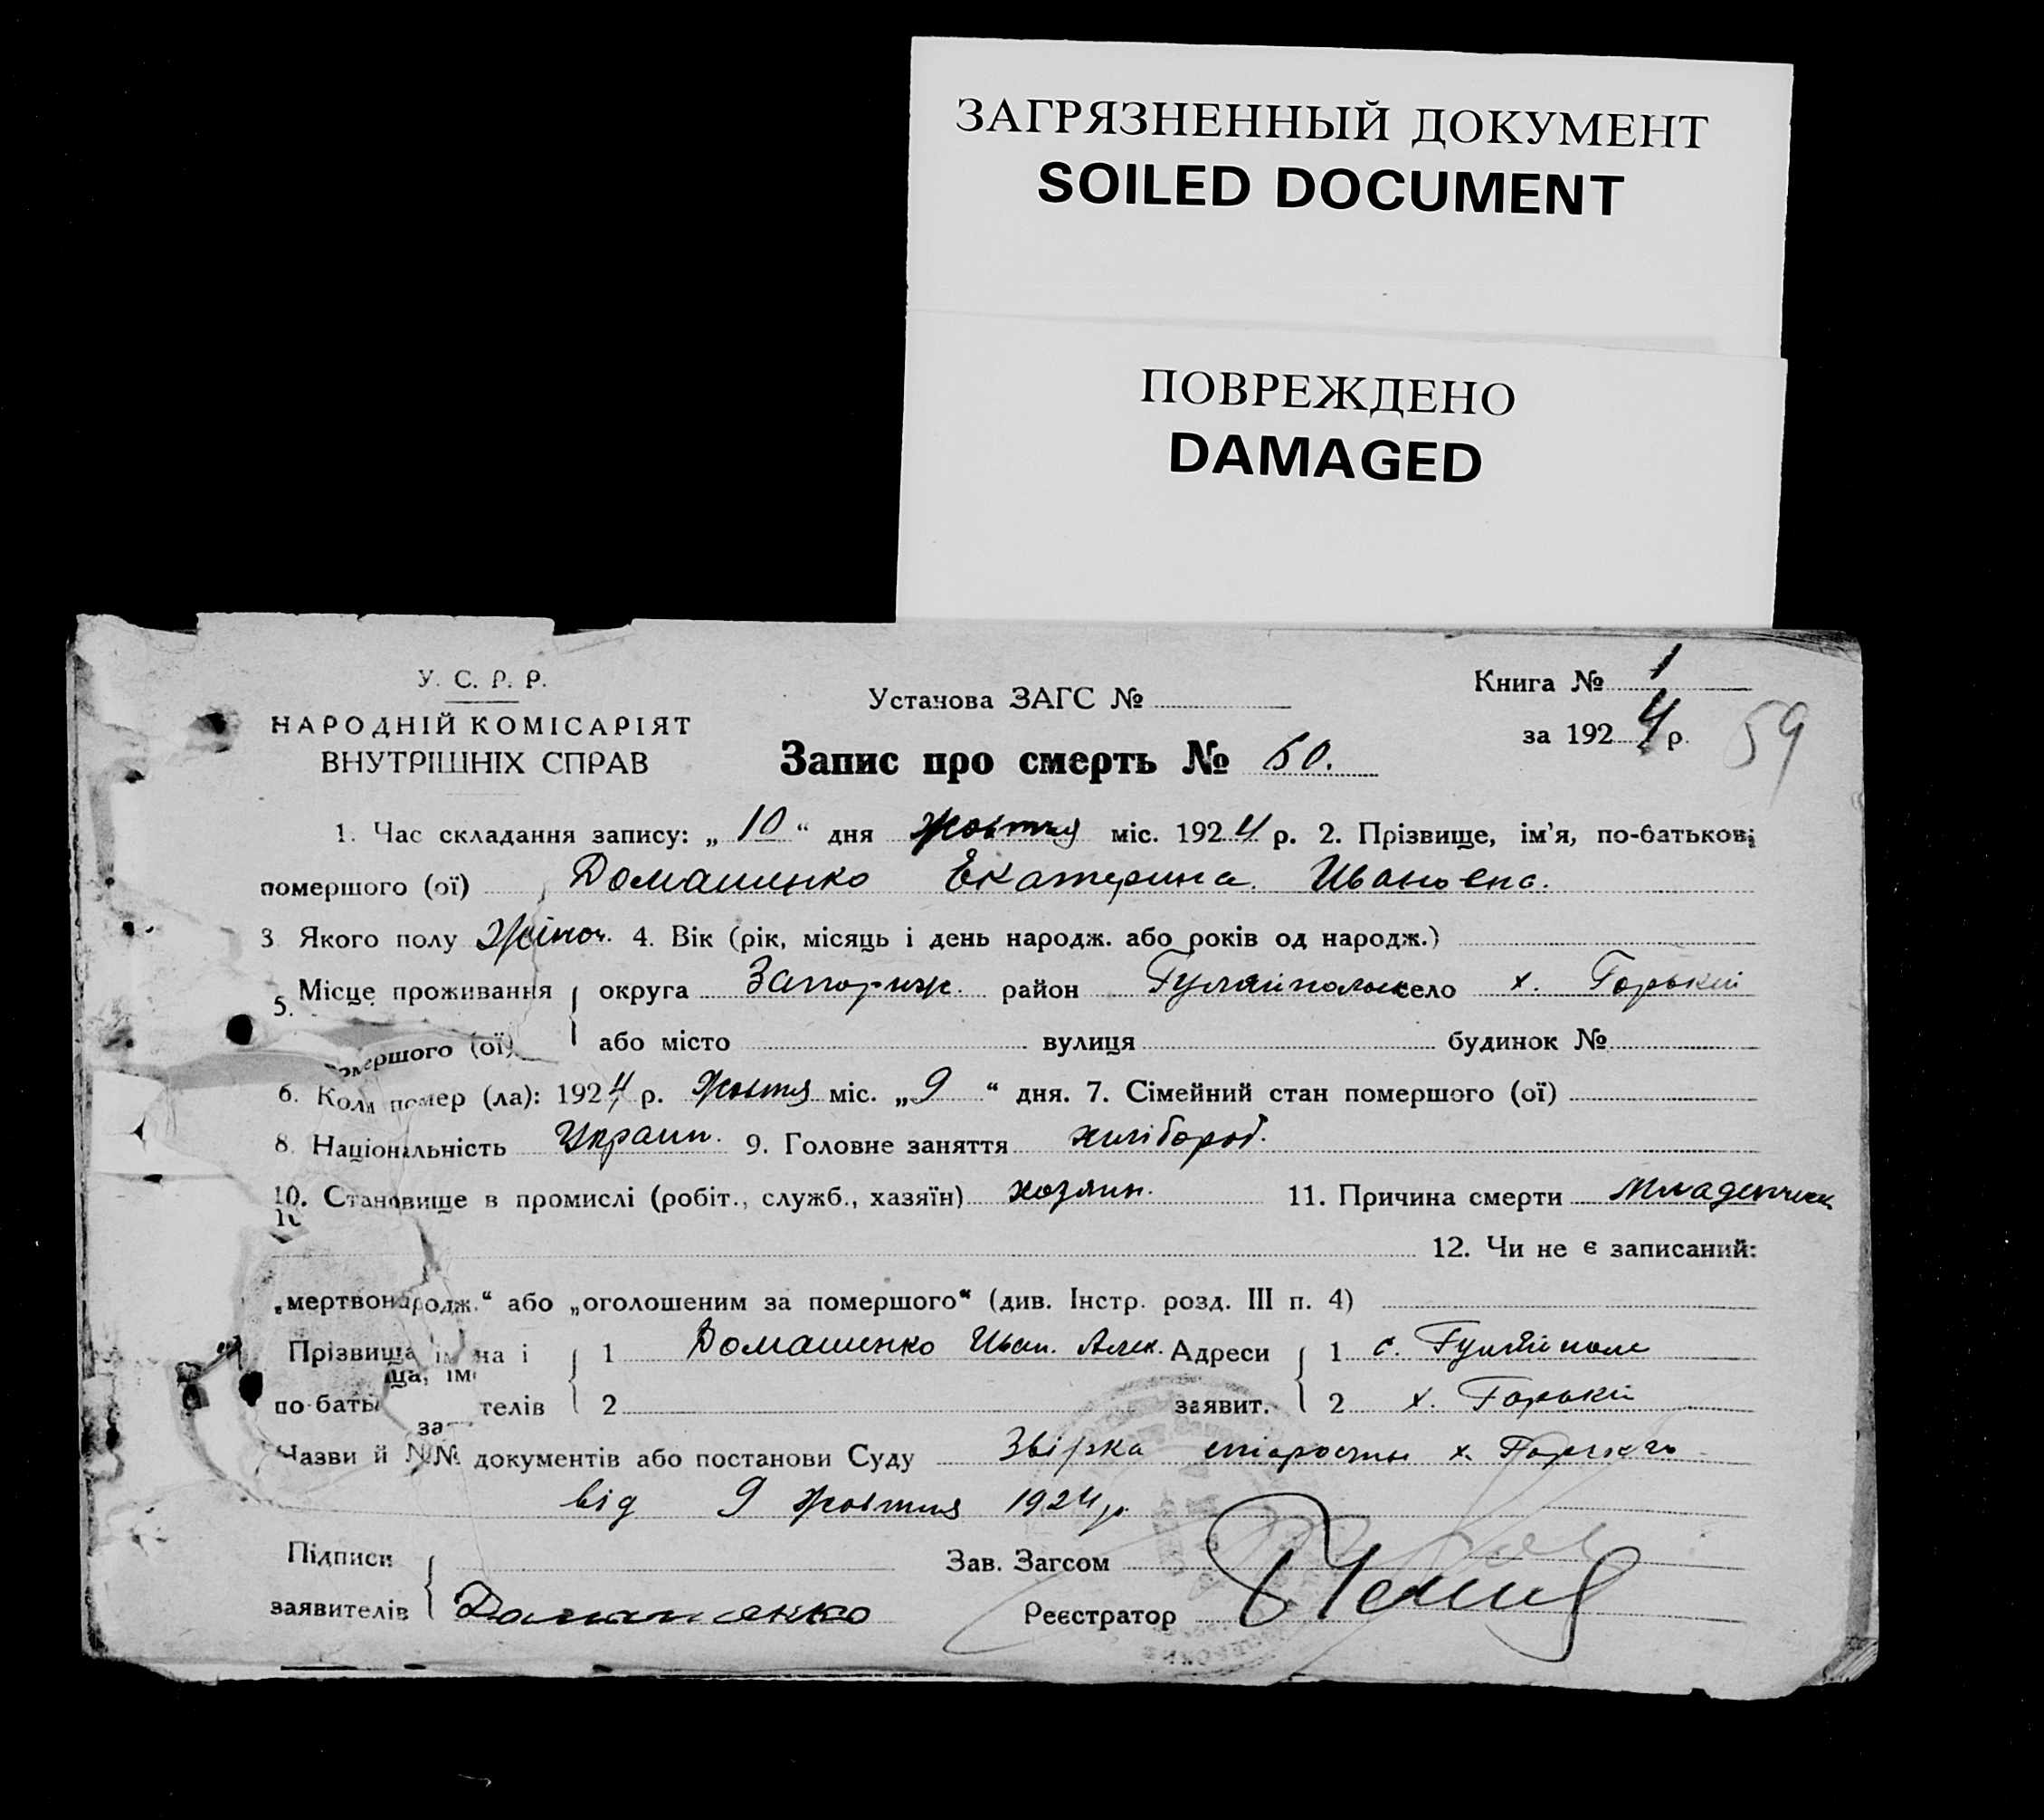 ЗАГРЯЗНЕННЫЙ ДОКУМЕНТ
SOILED DOCUMENT
ПОВРЕЖДЕНО
DAMAGED
У. С. Р. Р.
НАРОДНІЙ КОМІСАРІЯТ
ВНУТРІШНІХ СПРАВ
Установа ЗАГС №
Запис про смерть № 60.
Книга № 1
за 1924 р.
59
1. Час складання запису: „10“ дня жовтня міс. 1924 р. 2. Прізвище, ім'я, по-батькові
помершого (ої) Домашенко Екатерина Ивановна.
3 Якого полу Жіноч. 4. Вік (рік, місяць і день народж. або років од народж.)
5. Місце проживання округа Запориж. район Гуляйпольск село х. Горький
помершого (ої) або місто вулиця будинок №
6. Коли помер (ла): 1924 р. Жовтня міс. „9“ дня. 7. Сімейний стан помершого (ої)
8. Національність Украин. 9. Головне заняття хлібороб.
10. Становище в промислі (робіт., служб., хазяїн) хозяин. 11. Причина смерти Младенческ
12. Чи не є записаний:
„мертвонародж.“ або „оголошеним за помершого“ (див. Інстр. розд. III п. 4)
Прізвища імена і 1 Домашенко Иван. Алек. Адреси 1 с. Гуляйполе
по-бать телів 2 заявит. 2 х. Горький
Назви й №№ документів або постанови Суду Звірка старости х. Горького
від 9 жовтня 1924 р.
Підписи Зав. Загсом
заявителів Домашенко Реєстратор